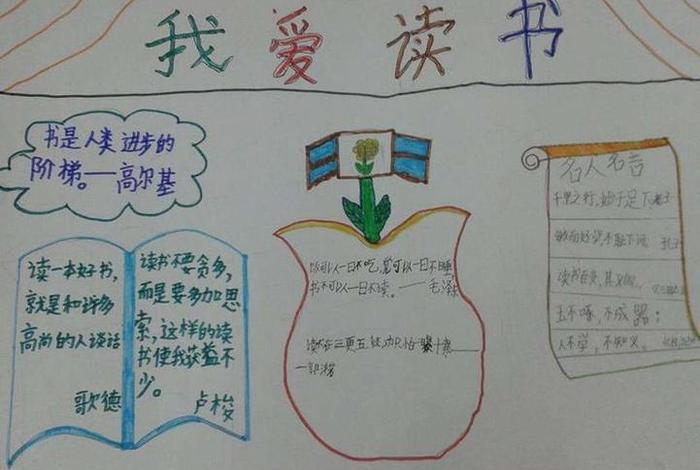 我爱读书
书是人类进步的
阶梯。——高尔基
读一本好书,
就是和许多
高尚的人谈话
歌德
读书不要贪多,
而是要多加思
索,这样的读
书使我获益不
少。
卢梭
饭可以一日不吃,觉可以一日不睡
书不可以一日不读。——毛泽
读书在三更五
名人名言
千里之行,始于足下 老子
敏而好学,不耻下问 孔子
读书百
玉不啄,不成器;
人不学,不知义。